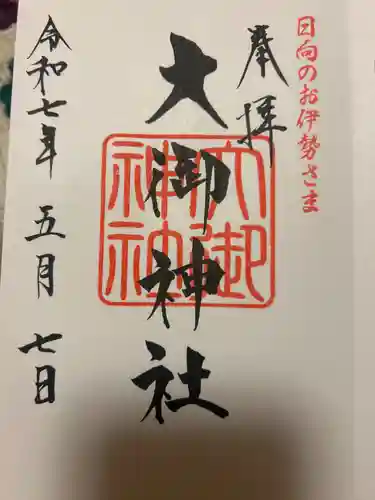 日向のお伊勢さま
奉拝
大御神社
大御神社
令和七年五月七日